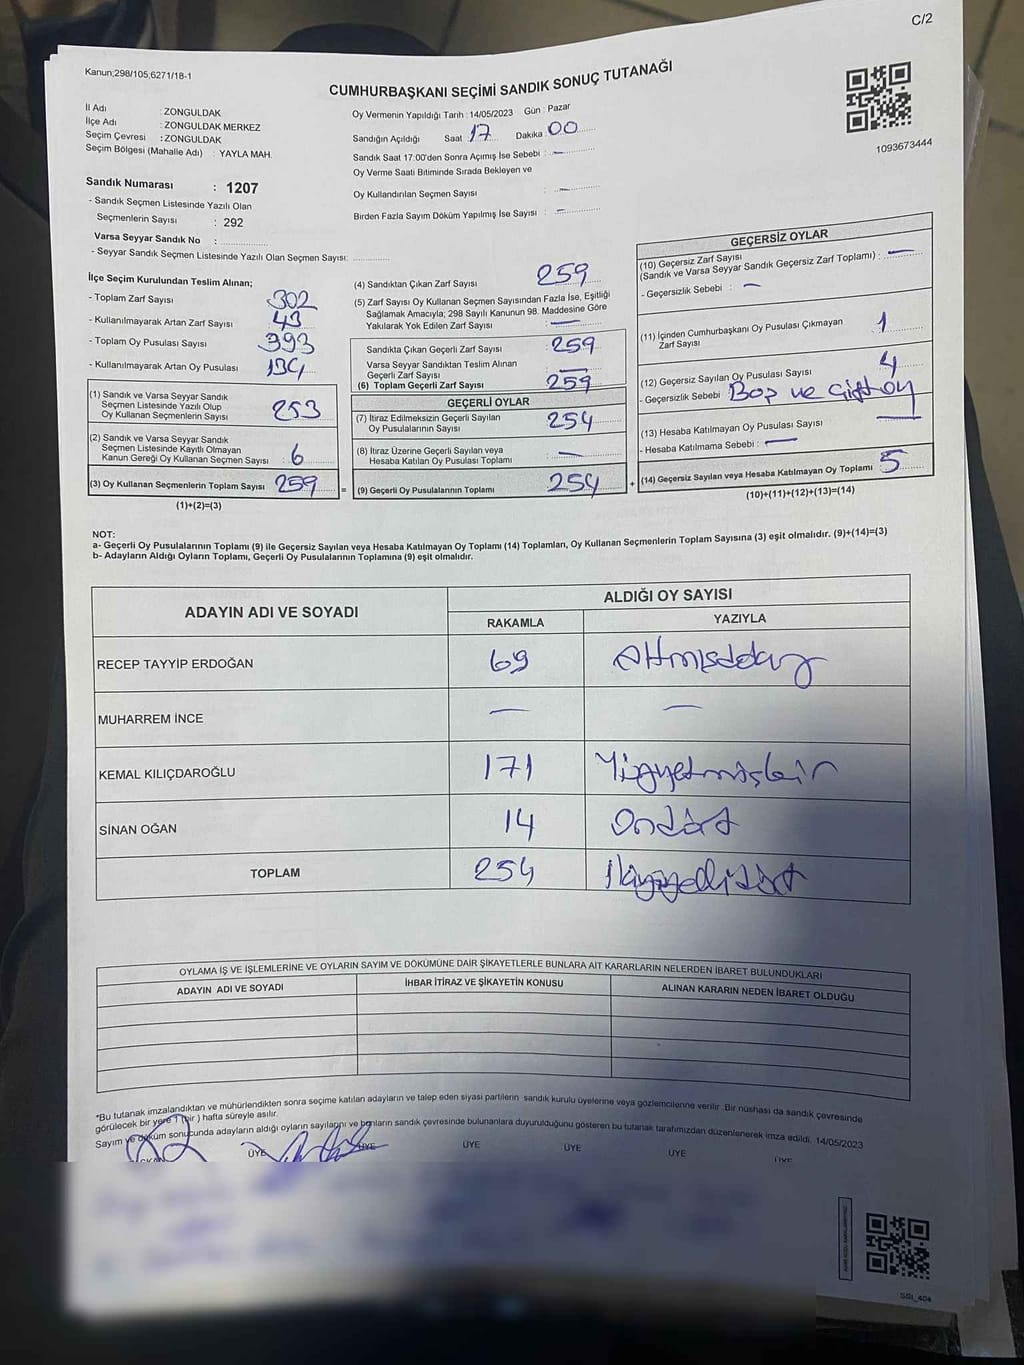 C/2
Kanun;298/105,6271/18-1
CUMHURBAŞKANI SEÇİMİ SANDIK SONUÇ TUTANAĞI
1093673444
İl Adı : ZONGULDAK
İlçe Adı : ZONGULDAK MERKEZ
Seçim Çevresi : ZONGULDAK
Seçim Bölgesi (Mahalle Adı) : YAYLA MAH.
Sandık Numarası : 1207
- Sandık Seçmen Listesinde Yazılı Olan
Seçmenlerin Sayısı : 292
Varsa Seyyar Sandık No :
- Seyyar Sandık Seçmen Listesinde Yazılı Olan Seçmen Sayısı:
Oy Vermenin Yapıldığı Tarih : 14/05/2023 Gün : Pazar
Sandığın Açıldığı Saat 17 Dakika 00
Sandık Saat 17:00'den Sonra Açımış İse Sebebi : —
Oy Verme Saati Bitiminde Sırada Bekleyen ve
Oy Kullandırılan Seçmen Sayısı : —
Birden Fazla Sayım Döküm Yapılmış İse Sayısı : —
İlçe Seçim Kurulundan Teslim Alınan;
- Toplam Zarf Sayısı 302
- Kullanılmayarak Artan Zarf Sayısı 43
- Toplam Oy Pusulası Sayısı : 393
- Kullanılmayarak Artan Oy Pusulası : 134
(1) Sandık ve Varsa Seyyar Sandık
Seçmen Listesinde Yazılı Olup
Oy Kullanan Seçmenlerin Sayısı : 253
(2) Sandık ve Varsa Seyyar Sandık
Seçmen Listesinde Kayıtlı Olmayan
Kanun Gereği Oy Kullanan Seçmen Sayısı : 6
(3) Oy Kullanan Seçmenlerin Toplam Sayısı : 259
(1)+(2)=(3)
(4) Sandıktan Çıkan Zarf Sayısı 259
(5) Zarf Sayısı Oy Kullanan Seçmen Sayısından Fazla İse, Eşitliği
Sağlamak Amacıyla; 298 Sayılı Kanunun 98. Maddesine Göre
Yakılarak Yok Edilen Zarf Sayısı : —
Sandıkta Çıkan Geçerli Zarf Sayısı : 259
Varsa Seyyar Sandıktan Teslim Alınan
Geçerli Zarf Sayısı : —
(6) Toplam Geçerli Zarf Sayısı : 259
GEÇERLİ OYLAR
(7) İtiraz Edilmeksizin Geçerli Sayılan
Oy Pusulalarının Sayısı : 254
(8) İtiraz Üzerine Geçerli Sayılan veya
Hesaba Katılan Oy Pusulası Toplamı : —
= (9) Geçerli Oy Pusulalarının Toplamı 254
GEÇERSİZ OYLAR
(10) Geçersiz Zarf Sayısı
(Sandık ve Varsa Seyyar Sandık Geçersiz Zarf Toplamı) : —
- Geçersizlik Sebebi : —
(11) İçinden Cumhurbaşkanı Oy Pusulası Çıkmayan
Zarf Sayısı 1
(12) Geçersiz Sayılan Oy Pusulası Sayısı 4
- Geçersizlik Sebebi Boş ve Çift oy
(13) Hesaba Katılmayan Oy Pusulası Sayısı —
- Hesaba Katılmama Sebebi : —
+ (14) Geçersiz Sayılan veya Hesaba Katılmayan Oy Toplamı 5
(10)+(11)+(12)+(13)=(14)
NOT:
a- Geçerli Oy Pusulalarının Toplamı (9) ile Geçersiz Sayılan veya Hesaba Katılmayan Oy Toplamı (14) Toplamları, Oy Kullanan Seçmenlerin Toplam Sayısına (3) eşit olmalıdır. (9)+(14)=(3)
b- Adayların Aldığı Oyların Toplamı, Geçerli Oy Pusulalarının Toplamına (9) eşit olmalıdır.
ADAYIN ADI VE SOYADI ALDIĞI OY SAYISI
RAKAMLA YAZIYLA
RECEP TAYYİP ERDOĞAN 69 Altmışdokuz
MUHARREM İNCE — —
KEMAL KILIÇDAROĞLU 171 Yüzyetmişbir
SİNAN OĞAN 14 Ondört
TOPLAM 254 İkiyüzellidört
OYLAMA İŞ VE İŞLEMLERİNE VE OYLARIN SAYIM VE DÖKÜMÜNE DAİR ŞİKAYETLERLE BUNLARA AİT KARARLARIN NELERDEN İBARET BULUNDUKLARI
ADAYIN ADI VE SOYADI İHBAR İTİRAZ VE ŞİKAYETİN KONUSU ALINAN KARARIN NEDEN İBARET OLDUĞU
*Bu tutanak imzalandıktan ve mühürlendikten sonra seçime katılan adayların ve talep eden siyasi partilerin sandık kurulu üyelerine veya gözlemcilerine verilir .Bir nüshası da sandık çevresinde
görülecek bir yere 1 (bir) hafta süreyle asılır.
Sayım ve döküm sonucunda adayların aldığı oyların sayılarını ve bunların sandık çevresinde bulunanlara duyurulduğunu gösteren bu tutanak tarafımızdan düzenlenerek imza edildi. 14/05/2023
ÜYE ÜYE ÜYE ÜYE ÜYE ÜYE
SSI_404